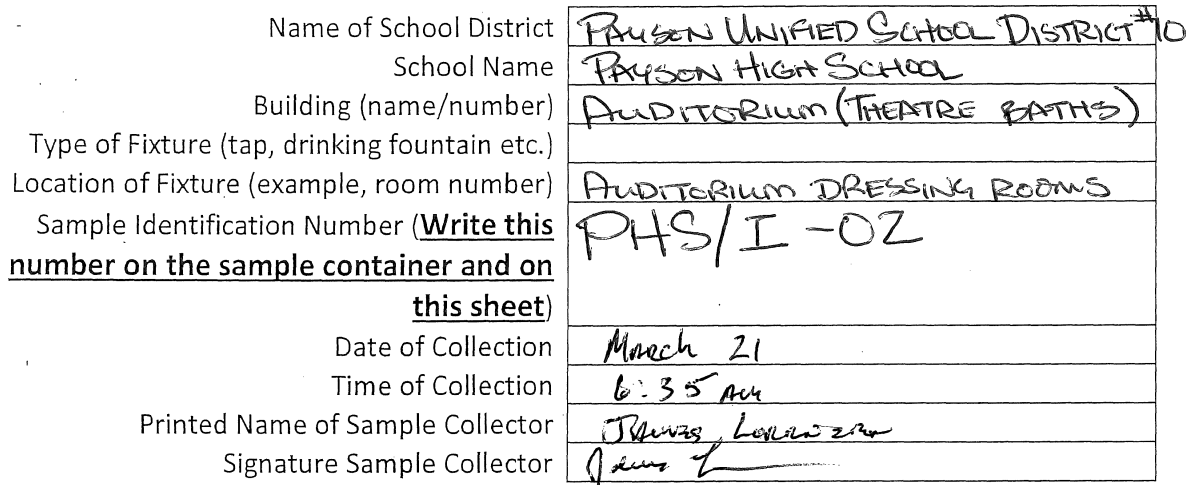 Name of School District PAYSON UNIFIED SCHOOL DISTRICT #10
School Name PAYSON HIGH SCHOOL
Building (name/number) AUDITORIUM (THEATRE BATHS)
Type of Fixture (tap, drinking fountain etc.)
Location of Fixture (example, room number) AUDITORIUM DRESSING ROOMS
Sample Identification Number (Write this PHS/I-02
number on the sample container and on
this sheet)
Date of Collection March 21
Time of Collection 6:35 AM
Printed Name of Sample Collector James
Signature Sample Collector